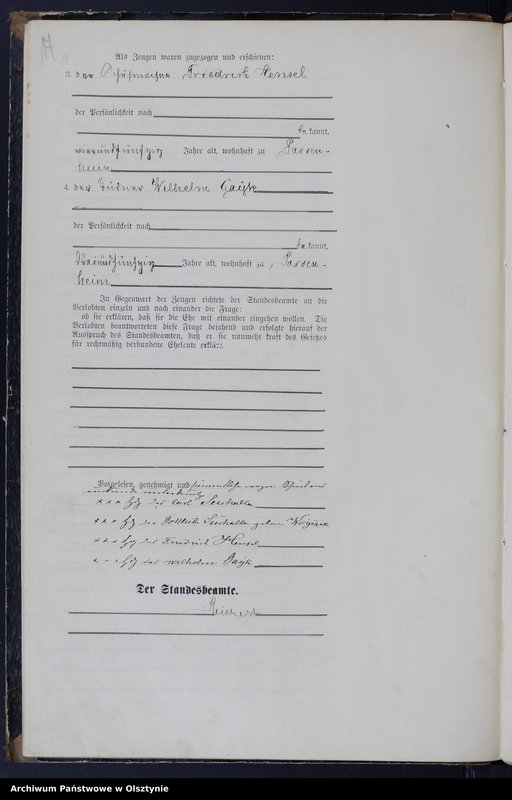 Als Zeugen waren zugezogen und erschienen:
3. der Friedrich Hensel
der Persönlichkeit nach
bekannt,
vierundfünfzig Jahre alt, wohnhaft zu Passen-
heim
4. der Wilhelm Gayk
der Persönlichkeit nach
bekannt,
dreiundfünfzig Jahre alt, wohnhaft zu Passen-
heim
In Gegenwart der Zeugen richtete der Standesbeamte an die
Verlobten einzeln und nach einander die Frage:
ob sie erklären, daß sie die Ehe mit einander eingehen wollen. Die
Verlobten beantworteten diese Frage bejahend und erfolgte hierauf der
Ausspruch des Standesbeamten, daß er sie nunmehr kraft des Gesetzes
für rechtmäßig verbundene Eheleute erkläre.
Vorgelesen, genehmigt und wegen
+++ Hz des Carl
+++ Hz der geboren
+++ Hz des Friedrich Hensel
+++ Hz des Wilhelm Gayk
Der Standesbeamte.
Archiwum Państwowe w Olsztynie